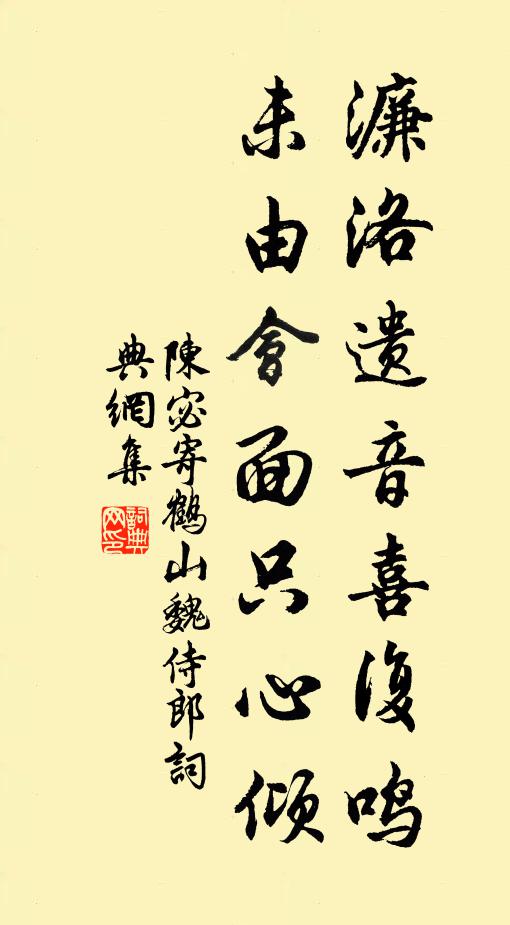 濂洛遺音喜復鳴
未由會面只心傾
陳宓寄鶴山魏侍郎詞
典網集
詞典
网印